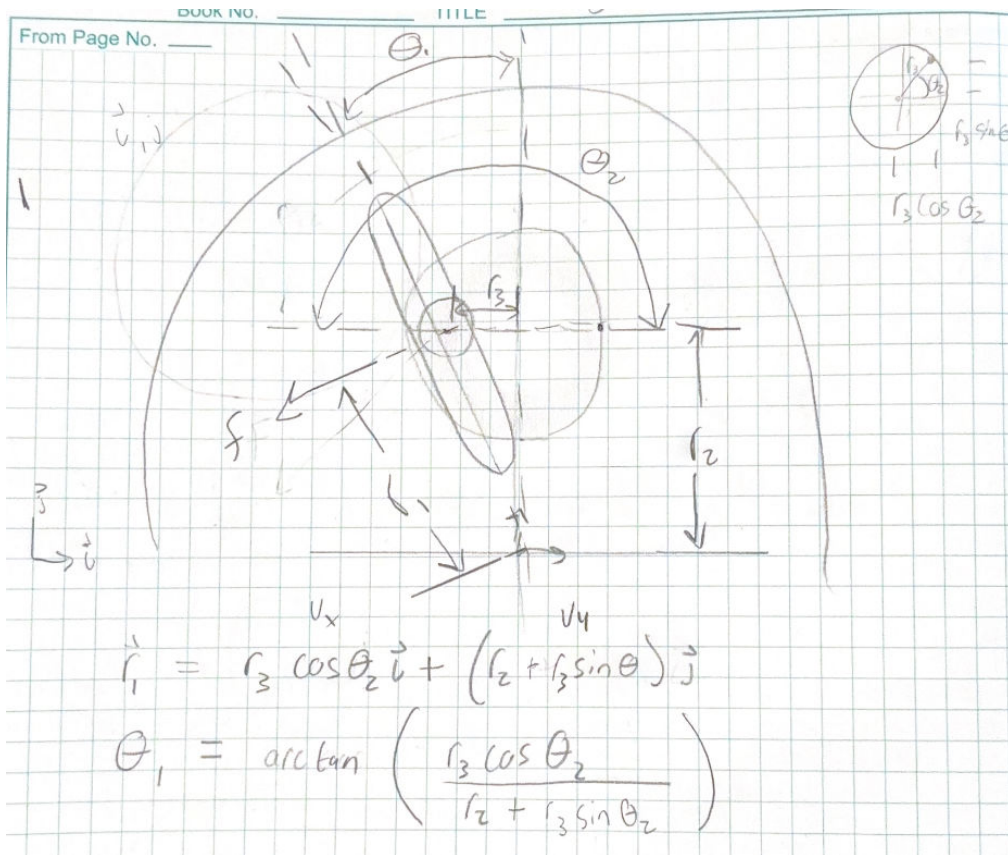 BOOK NO. TITLE
From Page No.
θ₁
r₃
θ₂
r₃ sinθ
r₃ cos θ₂
θ₂
r₃
f
r₂
j⃗
i⃗
Vx Vy
r⃗₁ = r₃ cosθ₂ i⃗ + (r₂ + r₃ sinθ) j⃗
θ₁ = arctan ( r₃ cos θ₂ / r₂ + r₃ sin θ₂ )